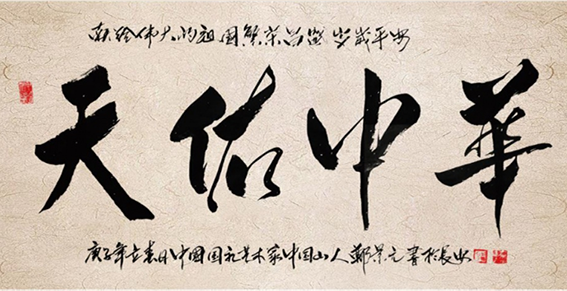 献给伟大的祖国繁荣昌盛岁岁平安
天佑中華
庚子年立春日中国国礼艺术家中国山人鄭景元書於長安